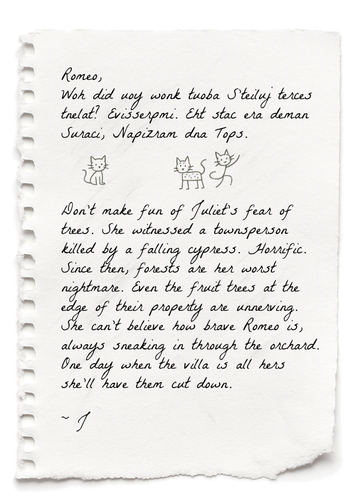 Romeo,
Woh did uoy wonk tuoba S'teiluj terces
tnelat? Evisserpmi. Eht stac era deman
Suraci, Napizram dna Tops.
Don't make fun of Juliet's fear of
trees. She witnessed a townsperson
killed by a falling cypress. Horrific.
Since then, forests are her worst
nightmare. Even the fruit trees at the
edge of their property are unnerving.
She can't believe how brave Romeo is,
always sneaking in through the orchard.
One day when the villa is all hers
she'll have them cut down.
~ J